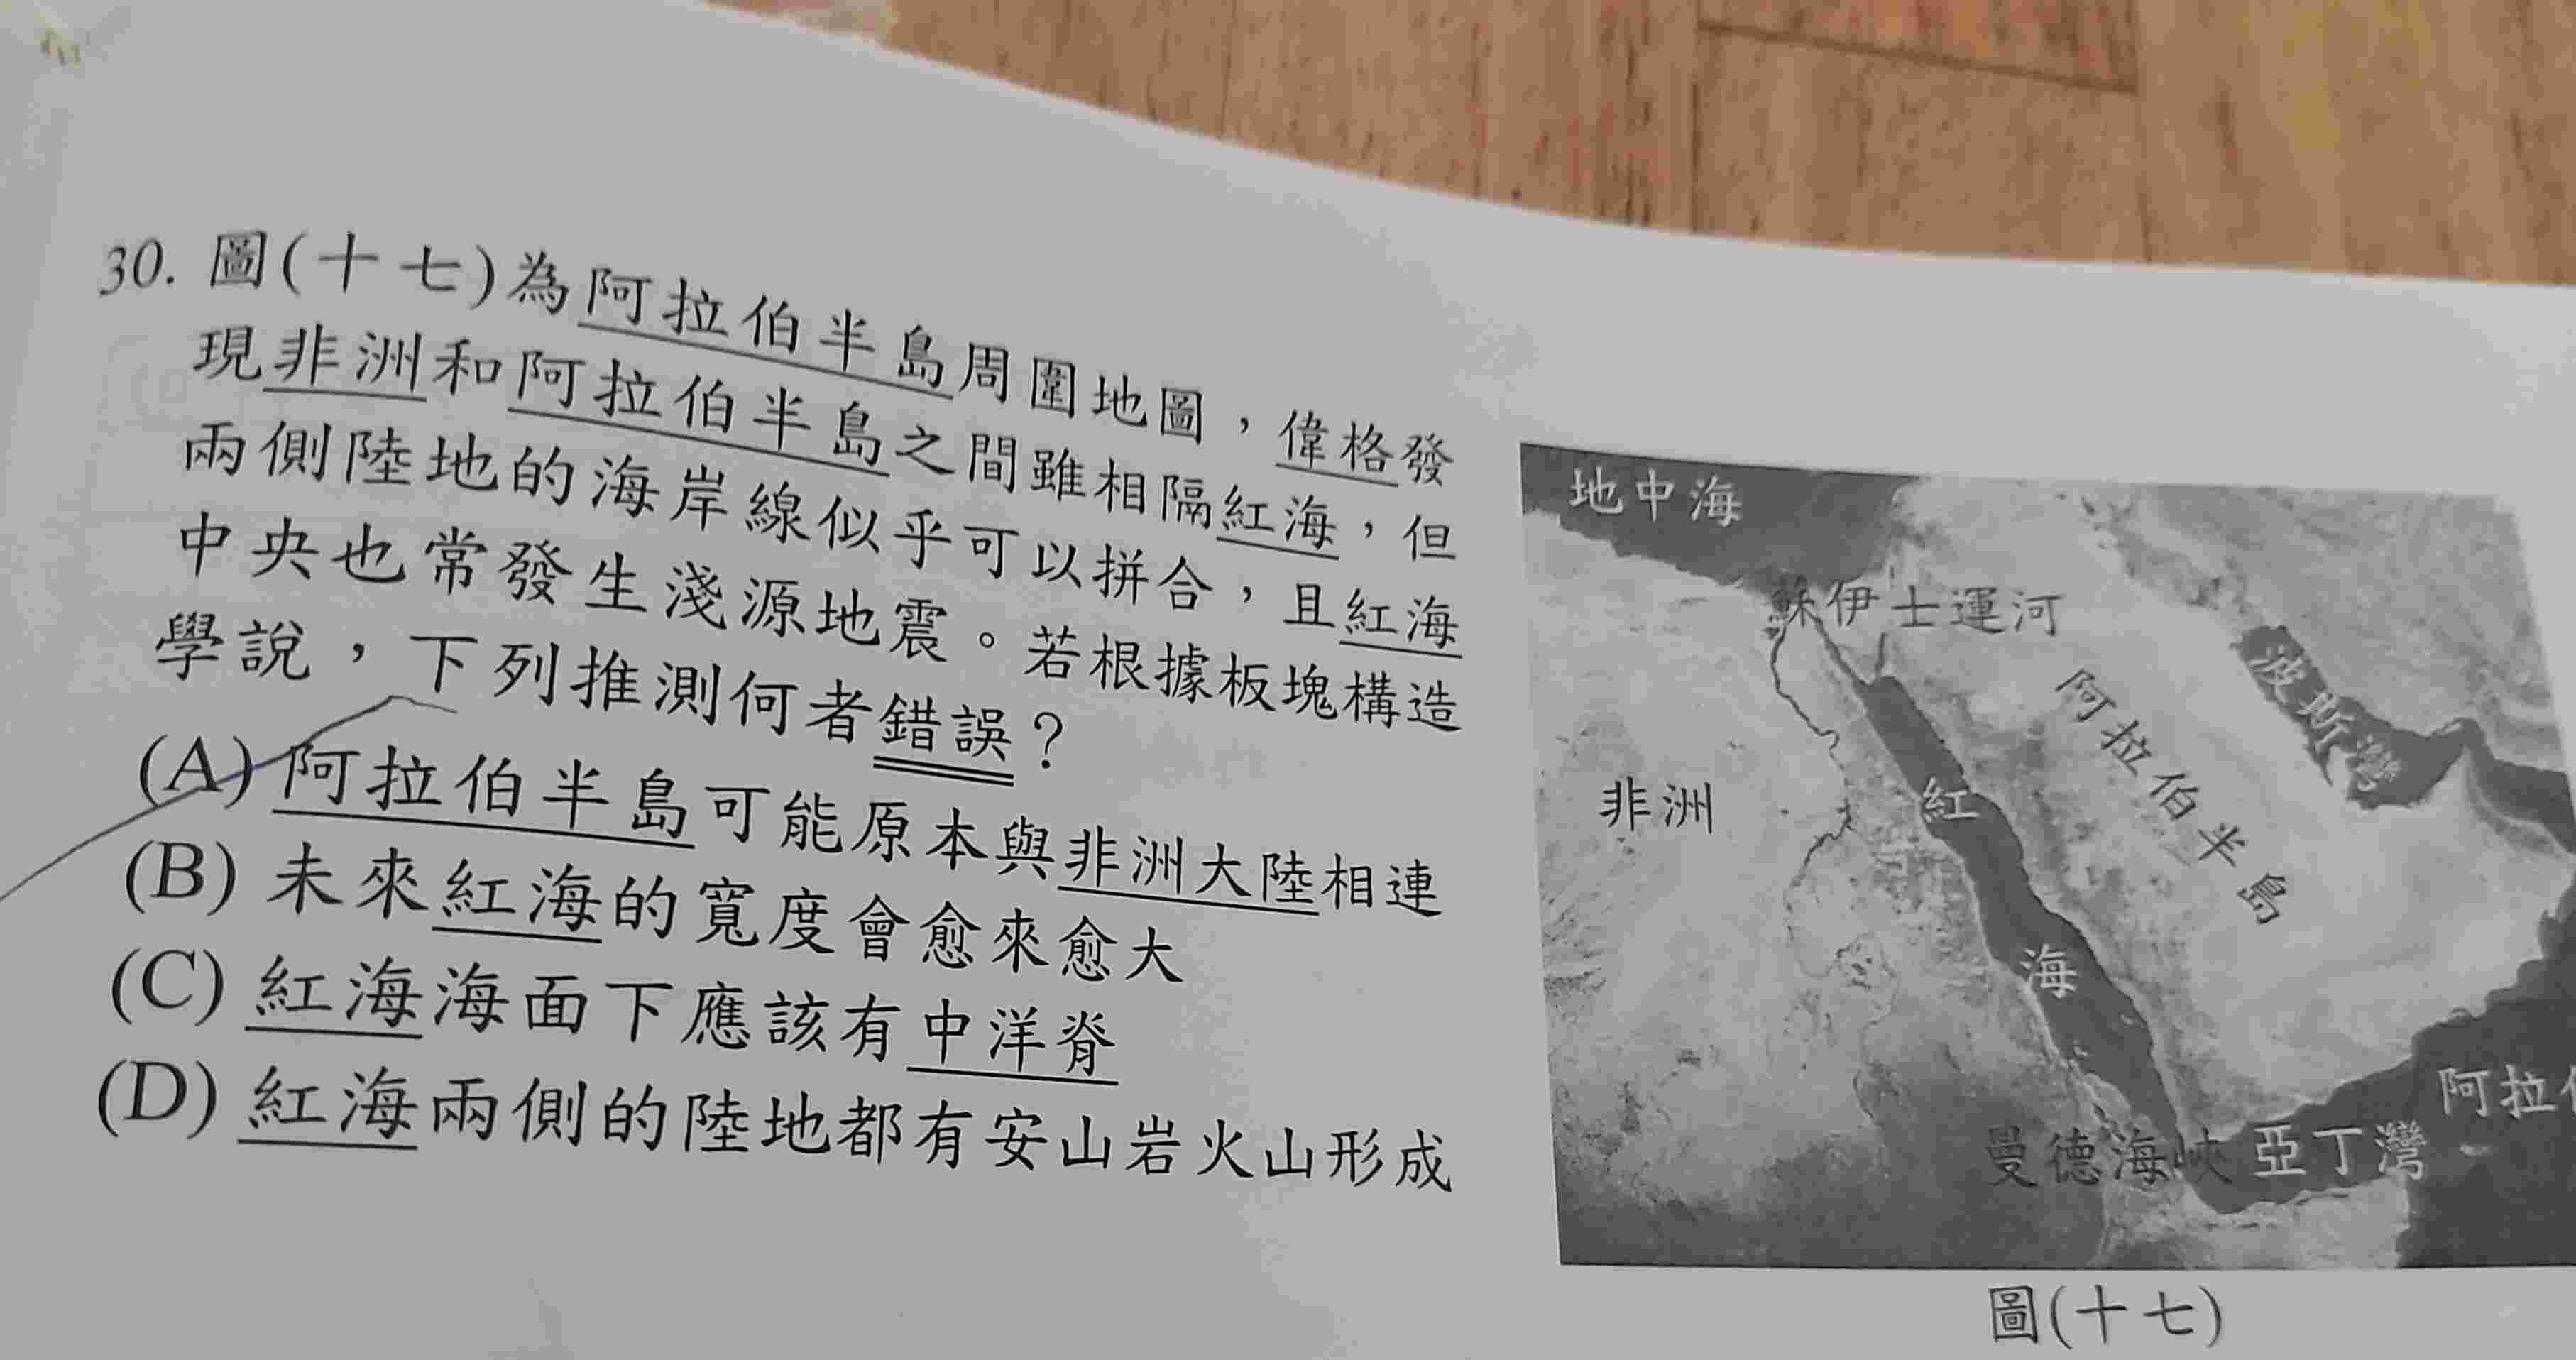 30. 圖(十七)為阿拉伯半島周圍地圖，偉格發
現非洲和阿拉伯半島之間雖相隔紅海，但
兩側陸地的海岸線似乎可以拼合，且紅海
中央也常發生淺源地震。若根據板塊構造
學說，下列推測何者錯誤？
(A) 阿拉伯半島可能原本與非洲大陸相連
(B) 未來紅海的寬度會愈來愈大
(C) 紅海海面下應該有中洋脊
(D) 紅海兩側的陸地都有安山岩火山形成
地中海
蘇伊士運河
波斯灣
阿拉伯半島
非洲
紅海
阿拉
曼德海峽
亞丁灣
圖(十七)